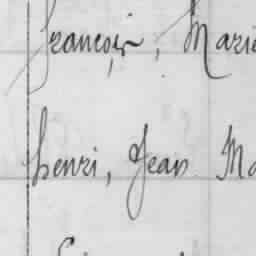 françois, Marie
henri, Jean Ma